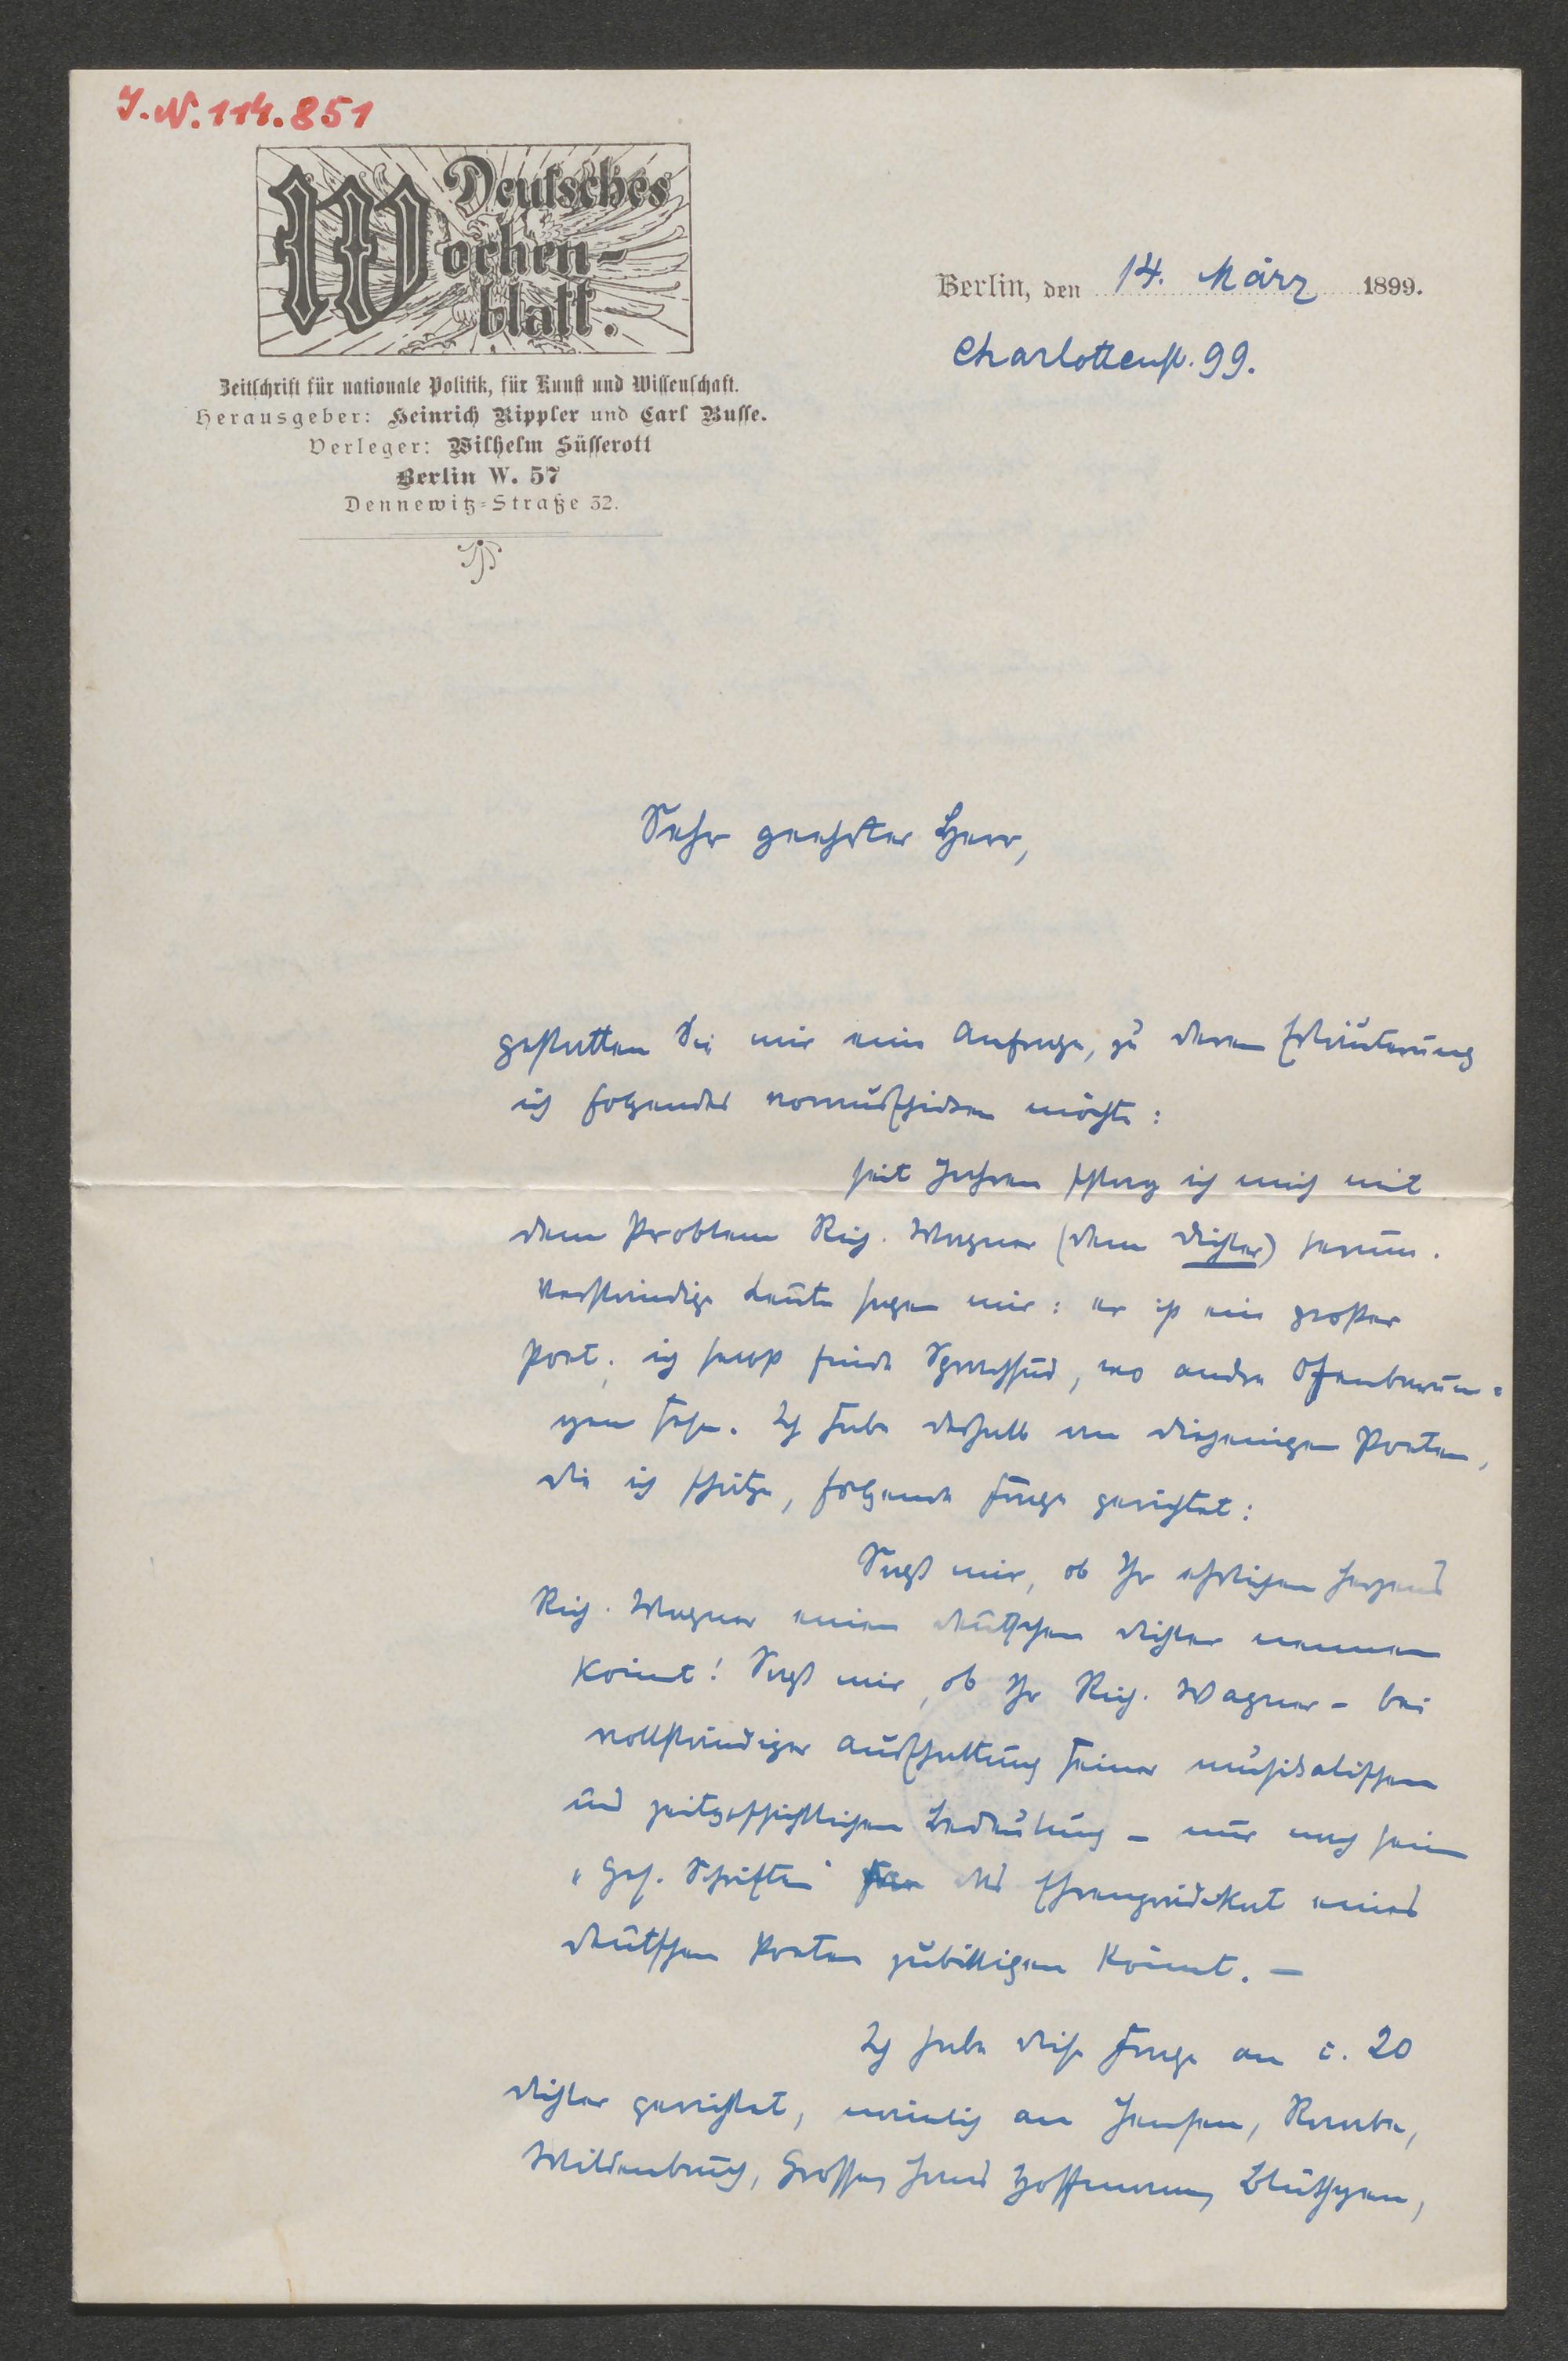 I.N. 114.851
Deutsches
Wochen-
blatt.
Zeitschrift für nationale Politik, für Kunst und Wissenschaft.
Herausgeber: Heinrich Rippler und Carl Busse.
Verleger: Wilhelm Süsserott
Berlin W. 57
Dennewitz-Straße 32.
Berlin, den 14. März 1899.
Charlottenst. 99.
Sehr geehrter Herr,
gestatten Sie mir eine Anfrage, zu deren Erläuterung
ich folgendes vorausschicken möchte:
Seit Jahren schlag ich mich mit
dem Problem Rich. Wagner (dem Dichter) herum.
Verständige Leute sagen mir: er ist ein großer
Poet; ich selbst finde Schwulst, wo andre Offenbarun-
gen sehn. Ich habe deshalb an diejenigen Poeten,
die ich schätze, folgende Frage gerichtet:
Sagt mir, ob Ihr ehrlichen Herzens
Rich. Wagner einen deutschen Dichter nennen
könnt! Sagt mir, ob Ihr Rich. Wagner - bei
vollständiger Ausschaltung seiner musikalischen
und zeitgeschichtlichen Bedeutung - nur nach sein
"Ges. Schriften" das Ehrenprädikat eines
deutschen Poeten zubilligen könnt. —
Ich habe diese Frage an c. 20
Dichter gerichtet, nämlich an Jensen, Raabe,
Wildenbruch, Grosse, Hans Hoffmann, Blüthgen,